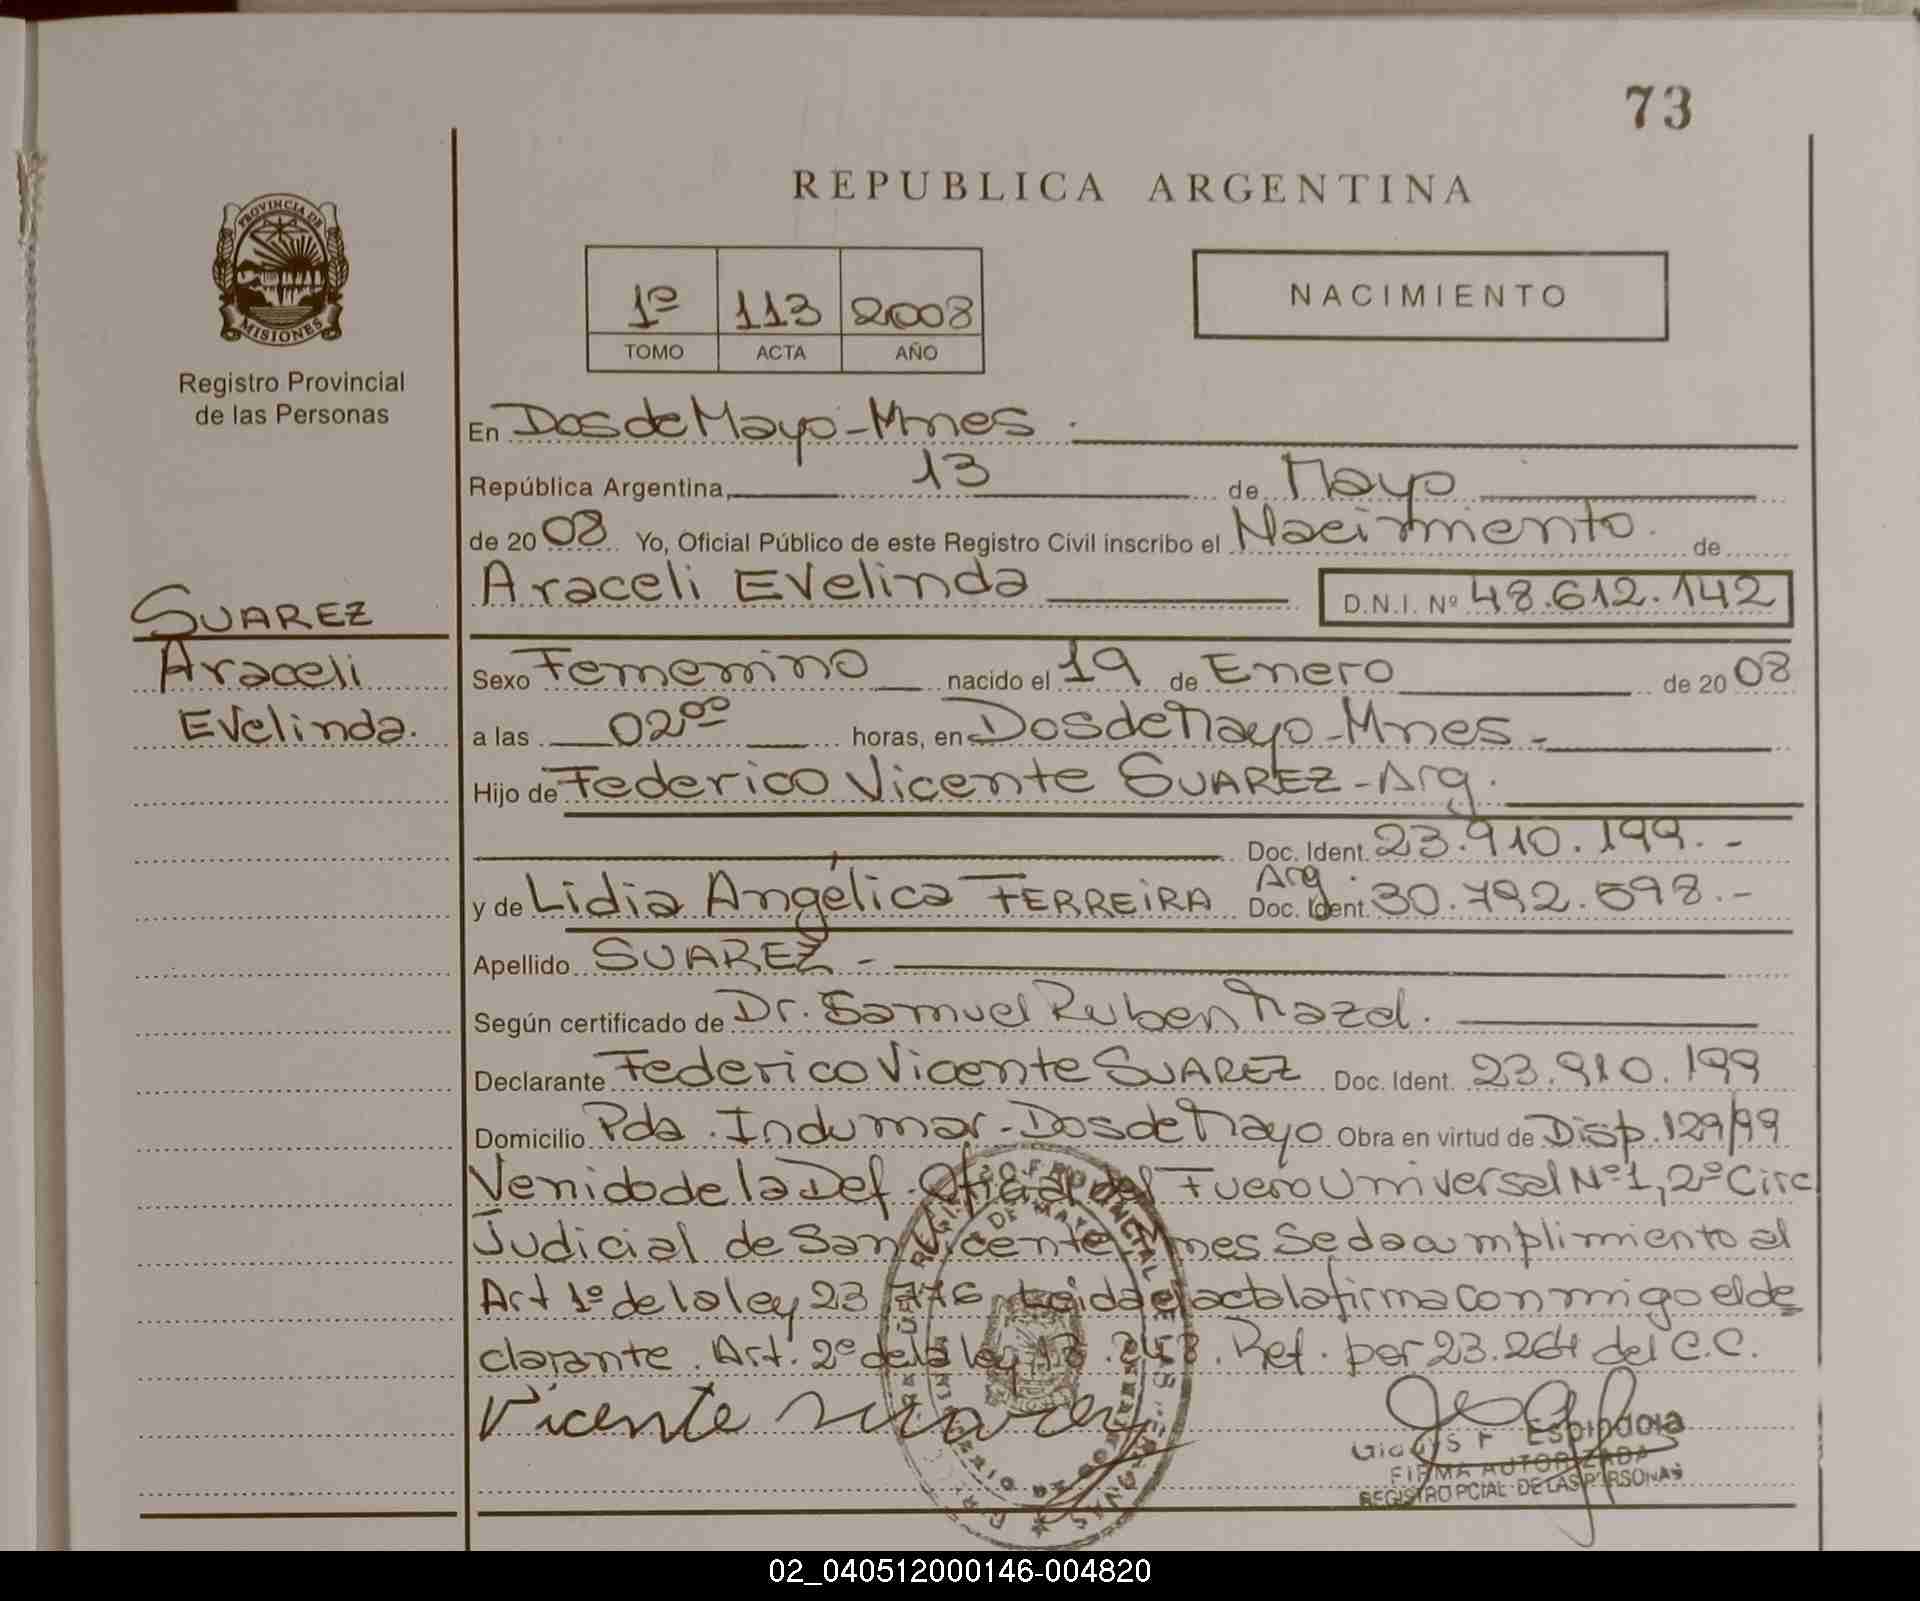 73
REPUBLICA ARGENTINA
PROVINCIA DE
MISIONES
Registro Provincial
de las Personas
1º 113 2008
TOMO ACTA AÑO
NACIMIENTO
En Dos de Mayo - Mnes.
República Argentina, 13 de Mayo
de 2008 Yo, Oficial Público de este Registro Civil inscribo el Nacimiento. de
Araceli Evelinda D.N.I. Nº 48.612.142
SUAREZ
Araceli
Evelinda.
Sexo Femenino nacido el 19 de Enero de 2008
a las 02⁰⁰ horas, en Dos de Mayo - Mnes -
Hijo de Federico Vicente SUAREZ - Arg.
Doc. Ident. 23.910.199. -
y de Lidia Angélica FERREIRA Arg. Doc. Ident. 30.792.598. -
Apellido SUAREZ -
Según certificado de Dr. Samuel Ruben
Declarante Federico Vicente SUAREZ Doc. Ident. 23.910.199
Domicilio Pda. Indumar - Dos de Mayo Obra en virtud de Disp. 129/99
Venido de la Def. Oficial del Fuero Universal Nº 1, 2º Circ
Judicial de San Vicente, Mnes Se da cumplimiento al
Art 1º de la ley 23.776 Leida el acta la firma conmigo el de
clarante. Art. 2º de la ley 18.248. Ref. por 23.264 del C.C.
Vicente Suarez
Gladys F Espindola
FIRMA AUTORIZADA
REGISTRO PCIAL. DE LAS PERSONAS
02_040512000146-004820